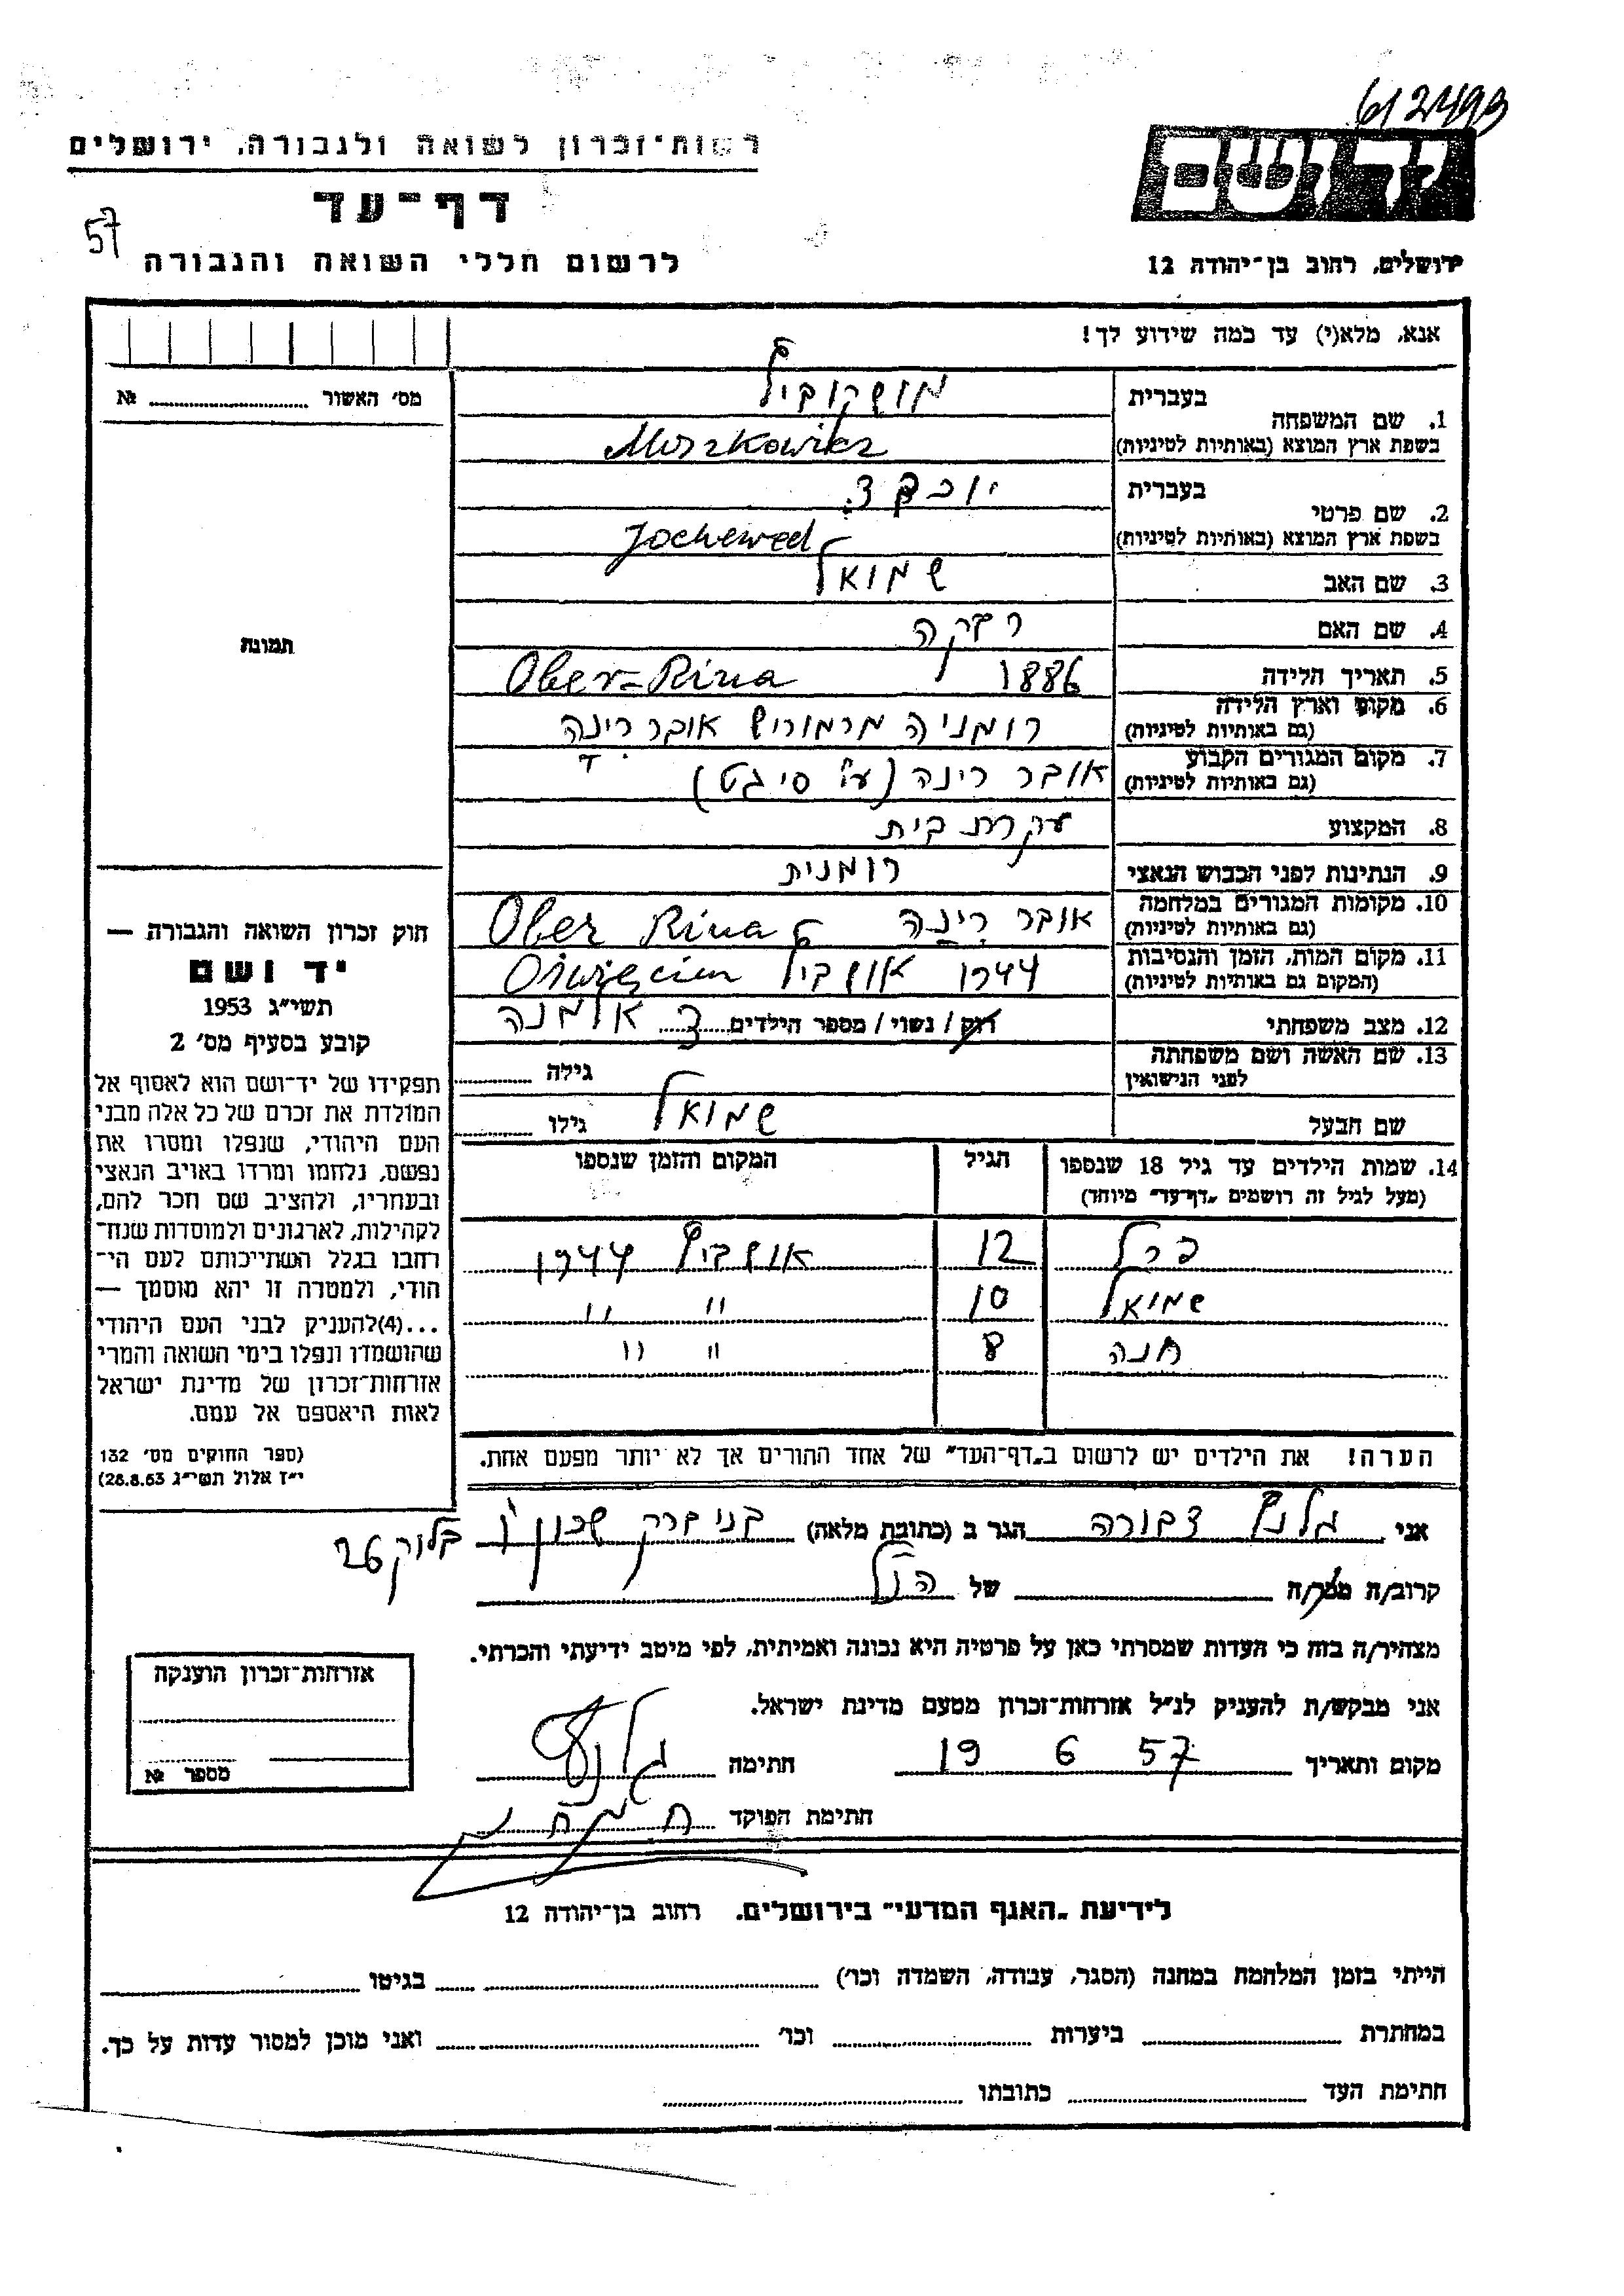 612493
רשות־זכרון לשואה ולגבורה, ירושלים
יד ושם
דף־עד
57
לרשום חללי השואה והגבורה
ירושלים, רחוב בן־יהודה 12
אנא, מלא(י) עד כמה שידוע לך!
מס׳ האשור № 
1. שם המשפחה
בעברית מושקוביץ
בשפת ארץ המוצא (באותיות לטיניות) Moszkowicz
2. שם פרטי
בעברית יוכבד
בשפת ארץ המוצא (באותיות לטיניות) Jochewed
3. שם האב שמואל
4. שם האם רבקה
5. תאריך הלידה 1886 Ober-Rina
6. מקום וארץ הלידה
(גם באותיות לטיניות) רומניה מרמורוש אובר רינה
7. מקום המגורים הקבוע
(גם באותיות לטיניות) אובר רינה (ע״י סיגט)
8. המקצוע עקרת בית
9. הנתינות לפני הכבוש הנאצי רומנית
10. מקומות המגורים במלחמה
(גם באותיות לטיניות) אובר רינה Ober Rina
11. מקום המות, הזמן והנסיבות
(המקום גם באותיות לטיניות) 1944 אושביץ Oświęcim
12. מצב משפחתי רוק / נשוי / מספר הילדים 3 אלמנה
13. שם האשה ושם משפחתה
לפני הנישואין גילה
שם הבעל שמואל גילו
14. שמות הילדים עד גיל 18 שנספו
(מעל לגיל זה רושמים „דף־עד״ מיוחד)
הגיל
המקום והזמן שנספו
פרל 12 אושביץ 1944
שמואל 10 " "
חנה 8 " "
הערה! את הילדים יש לרשום ב„דף־העד״ של אחד ההורים אך לא יותר מפעם אחת.
תמונה
חוק זכרון השואה והגבורה —
יד ושם
תשי״ג 1953
קובע בסעיף מס׳ 2
תפקידו של יד־ושם הוא לאסוף אל
המולדת את זכרם של כל אלה מבני
העם היהודי, שנפלו ומסרו את
נפשם, נלחמו ומרדו באויב הנאצי
ובעוזריו, ולהציב שם וזכר להם,
לקהילות, לארגונים ולמוסדות שנח־
רבו בגלל השתייכותם לעם הי־
הודי, ולמטרה זו יהא מוסמך —
...(4) להעניק לבני העם היהודי
שהושמדו ונפלו בימי השואה והמרי
אזרחות־זכרון של מדינת ישראל
לאות היאספם אל עמם.
(ספר החוקים מס׳ 132
י״ז אלול תשי״ג 28.8.53)
אני גלנץ דבורה הגר ב (כתובת מלאה) בני ברק שכון ו׳ בלוק 26
קרוב/ה מכר/ה של הנ״ל
מצהיר/ה בזה כי העדות שמסרתי כאן על פרטיה היא נכונה ואמיתית, לפי מיטב ידיעתי והכרתי.
אני מבקש/ת להעניק לנ״ל אזרחות־זכרון מטעם מדינת ישראל.
מקום ותאריך 19 6 57 חתימה גלנץ
חתימת הפוקד
אזרחות־זכרון הוענקה
מספר №
לידיעת „האגף המדעי״ בירושלים. רחוב בן־יהודה 12
הייתי בזמן המלחמה במחנה (הסגר, עבודה, השמדה וכו׳) בגיטו
במחתרת ביערות וכו׳ ואני מוכן למסור עדות על כך.
חתימת העד כתובתו